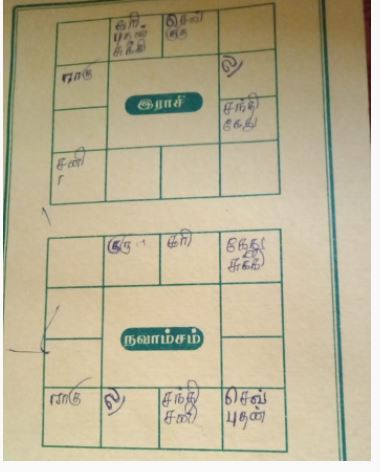 சூரி
புதன்
சுக்கி
செவ்
குரு
ராகு
ல
இராசி
சந்தி
கேது
சனி
குரு
சூரி
கேது
சுக்கி
நவாம்சம்
ராகு
ல
சந்தி
சனி
செவ்
புதன்